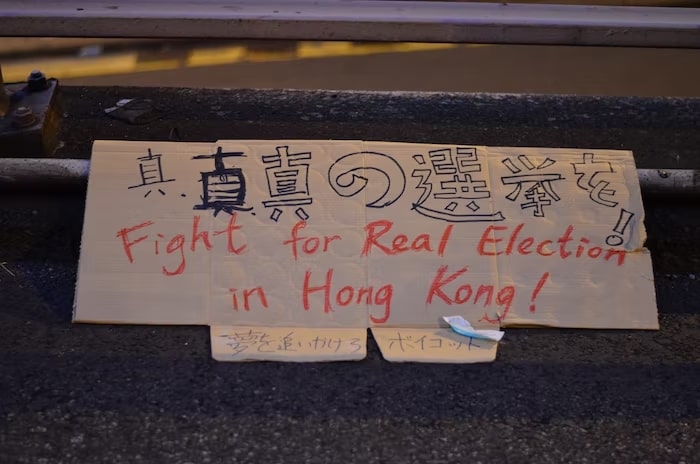 真、真真の選挙を!
Fight for Real Election
in Hong Kong!
夢を追いかけろ
ボイコット